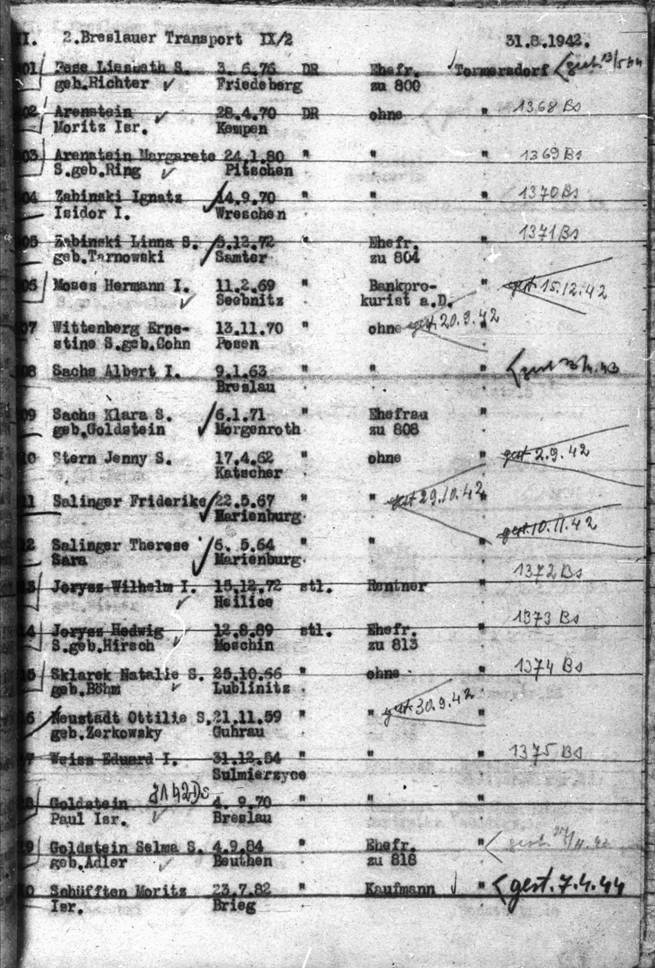 II. 2.Breslauer Transport IX/2 31.8.1942.
01 Liesbeth S. 3. 6.76 DR Ehefr. Tormersdorf
geb.Richter Friedeberg zu 800
02 Arenstein 28.4.70 DR ohne " 1368 Bs
Moritz Isr. Kempen
03 Arenstein Margarete 24.1.80 " " " 1369 Bs
S.geb.Ring Pitschen
04 Zabinski Ignatz 14.9.70 " " " 1370 Bs
Isidor I. Wreschen
05 Zabinski Linna S. 5.12.72 " Ehefr. " 1371 Bs
geb.Tarnowski Samter zu 804
06 Moses Hermann I. 11.2.69 " Bankpro- " gest. 15.12.42
Seebnitz kurist a.D.
07 Wittenberg Erne- 13.11.70 " ohne gest. 20.9.42 "
stine S.geb.Cohn Posen
08 Sachs Albert I. 9.1.63 " " "
Breslau
09 Sachs Klara S. 6.1.71 " Ehefrau "
geb.Goldstein Morgenroth zu 808
10 Stern Jenny S. 17.4.62 " ohne " gest 2.9.42
Katscher
11 Salinger Friderike 22.5.67 " " gest 29.10.42 "
Marienburg
12 Salinger Therese 6. 5.64 " " " gest. 10.11.42
Sara Marienburg
13 Joryez Wilhelm I. 15.12.72 stl. Rentner " 1372 Bs
Heilice
14 Joryez Hedwig 12.8.89 stl. Ehefr. " 1373 Bs
S.geb.Hirsch Moschin zu 813
15 Sklarek Natalie S. 25.10.66 " ohne " 1374 Bs
geb.Böhm Lublinitz
16 Neustadt Ottilie S. 21.11.59 " " gest 30.9.42 "
geb.Zerkowsky Guhrau
17 Weiss Eduard I. 31.12.54 " " " 1375 Bs
Sulmierzyce
18 Goldstein 4. 9.70 " " "
Paul Isr. Breslau
19 Goldstein Selma S. 4.9.84 " Ehefr. "
geb.Adler Beuthen zu 818
20 Schüfften Moritz 23.7.82 " Kaufmann " gest. 7.4.44
Isr. Brieg